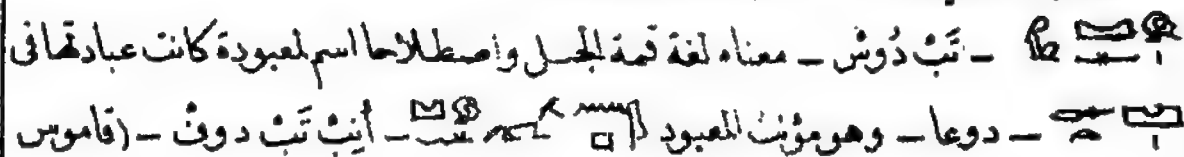 ـ تَبْ دُوسْ ـ معناه لغة قمة الجبل واصطلاحا اسم لمعبودة كانت عبادتها فى
ـ دوعا ـ وهو مؤنث للمعبود ـ أنِبْ تَبْ دوفْ ـ (قاموس